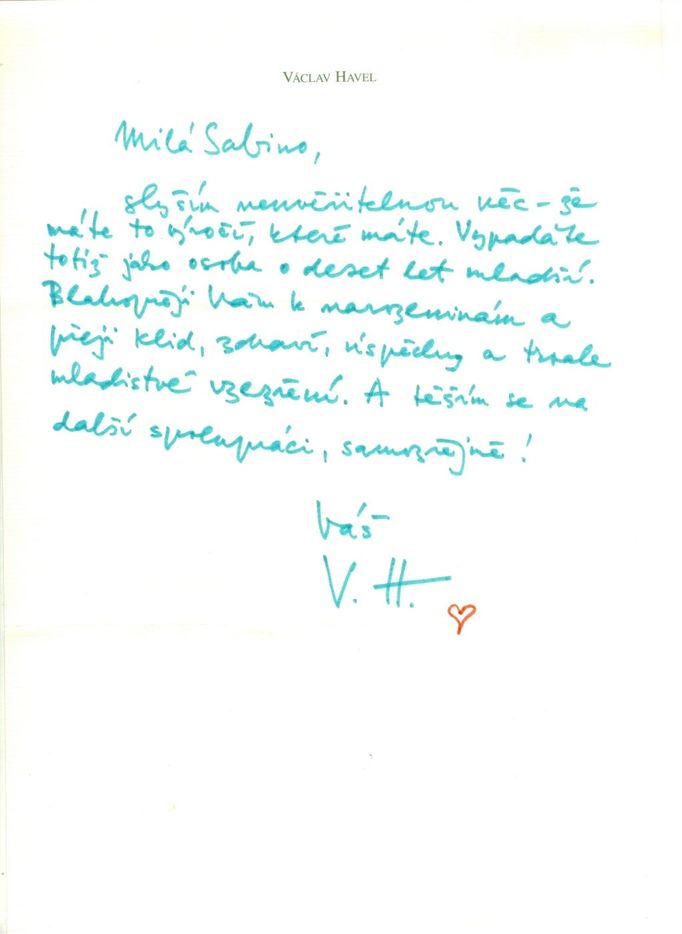 VÁCLAV HAVEL
Milá Sabino,
slyším neuvěřitelnou věc – že
máte to výročí, které máte. Vypadáte
totiž jako osoba o deset let mladší.
Blahopřeji Vám k narozeninám a
přeji klid, zdraví, úspěchy a trvale
mladistvé vzezření. A těším se na
další spolupráci, samozřejmě!
Váš
V. H.